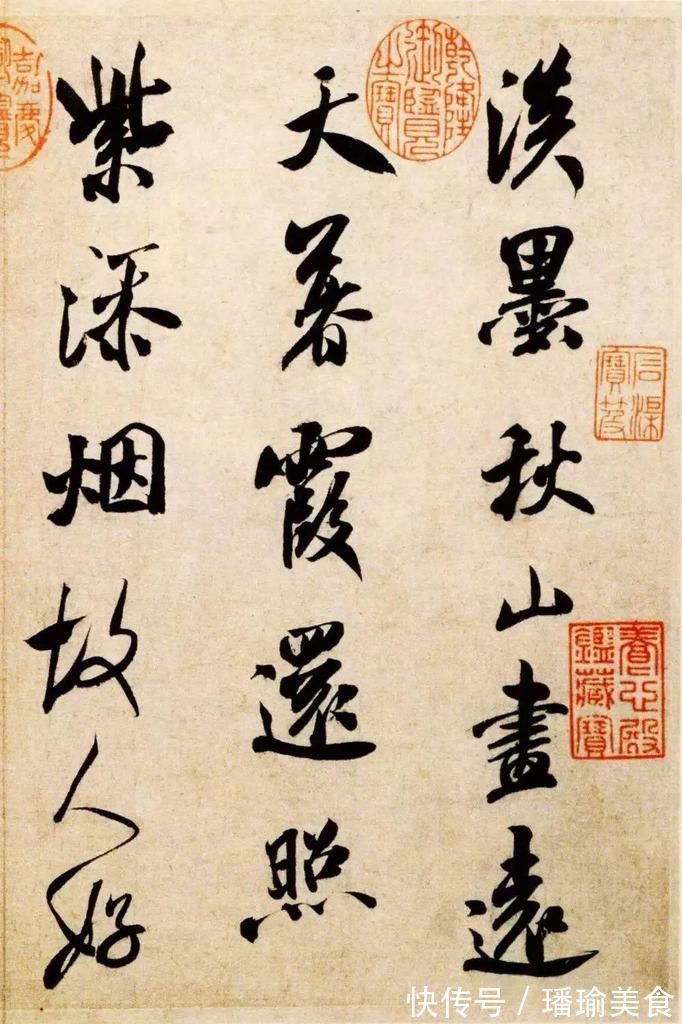 淡墨秋山畫遠
天暮霞還照
紫添烟故人好
乾隆御覽之寶
石渠寶笈
養心殿鑑藏寶
快传号／璠瑜美食